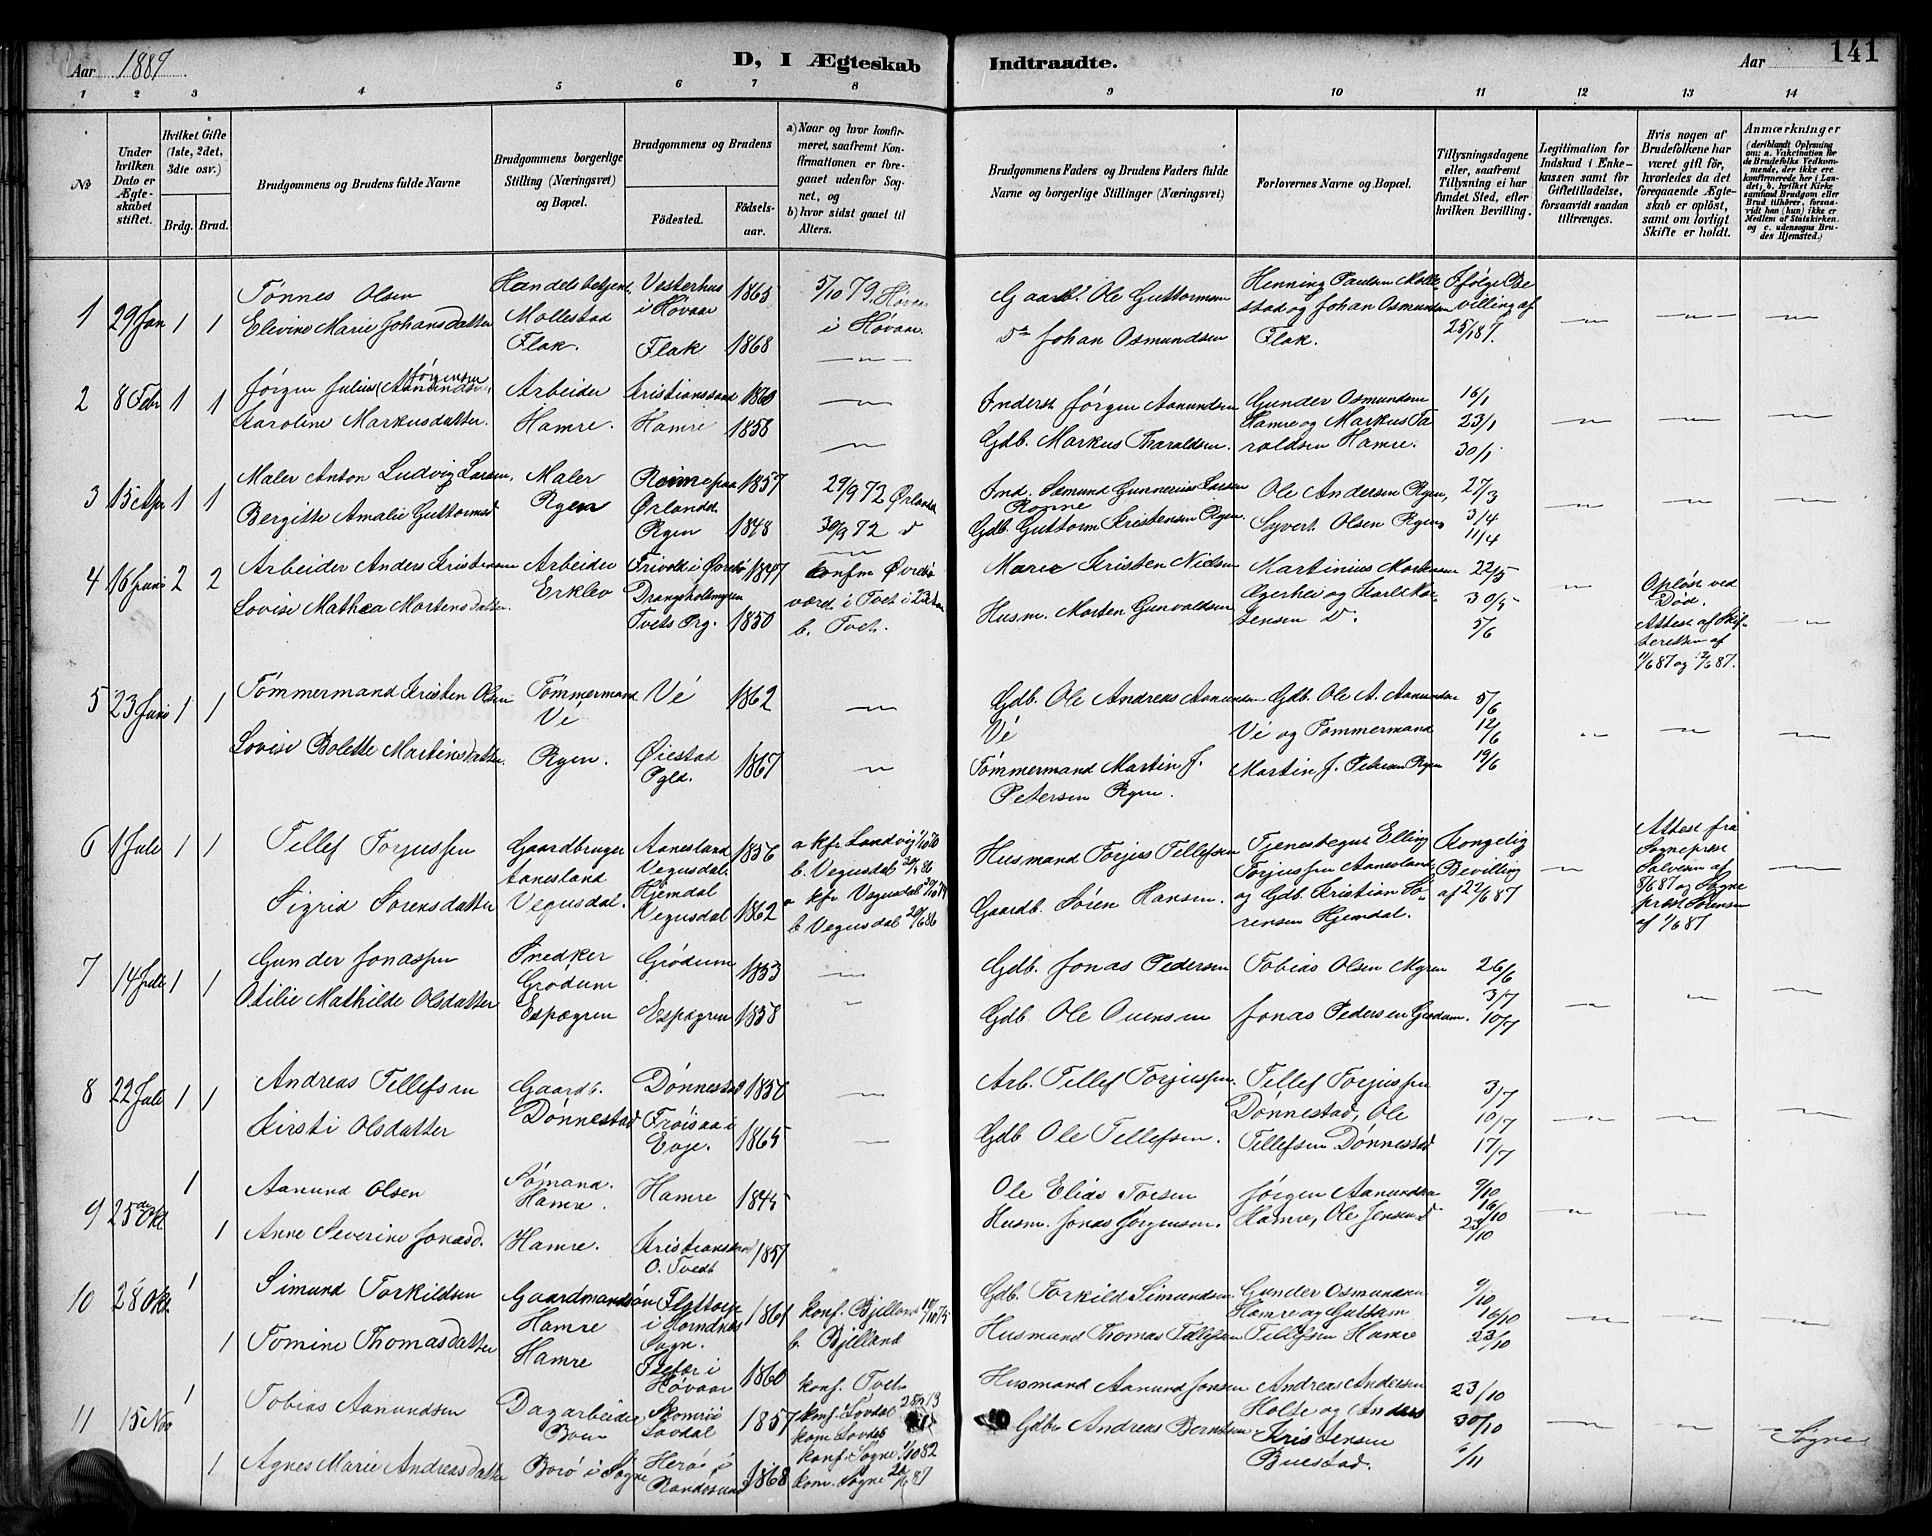 Aar 1887 D, I Ægteskab Indtraadte. Aar 141
1 2 3 4 5 6 7 8 9 10 11 12 13 14
No
Under hvilken Dato er Ægteskabet stiftet.
Hvilket Gifte (1ste, 2det, 3die osv.)
Brdg. Brud.
Brudgommens og Brudens fulde Navne
Brudgommens borgerlige Stilling (Næringsvei) og Bopæl.
Brudgommens og Brudens
Fødested. Fødselsaar.
a) Naar og hvor konfirmeret, saafremt Konfirmationen er foregaaet udenfor Sognet, og
b) hvor sidst gaaet til Alters.
Brudgommens Faders og Brudens Faders fulde Navne og borgerlige Stillinger (Næringsvei)
Forlovernes Navne og Bopæl.
Tillysningsdagene eller, saafremt Tillysning ei har fundet Sted, efter hvilken Bevilling.
Legitimation for Indskud i Enkekassen samt for Giftetilladelse, forsaavidt saadan tiltrænges.
Hvis nogen af Brudefolkene har været gift før, hvorledes da det foregaaende Ægteskab er opløst, samt om lovligt Skifte er holdt.
Anmærkninger (deriblandt Oplysning om: a. Vakcination for de Brudefolks Vedkommende, der ikke ere konfirmerede her i Landet; b. hvilket Kirkesamfund Brudgom eller Brud tilhører, forsaavidt han (hun) ikke er Medlem af Statskirken, og c. udensogns Brudes Hjemsted.)
1 29 Jan 1 1
Tønnes Olsen
Elevine Marie Johansdatter
Handelsbetjent
Mollestad
Flak.
Vesterhus i Høvaag 1865
Flak 1868
5/10 79
i Høvaag.
Gaardb. Ole Guttormsen
do Johan Osmundsen
Henning Paulsen Mollestad og Johan Osmundsen
Flak.
Ifølge Bevilling af
25/1 87.
2 8 Febr 1 1
Jørgen Julius (Aanundsen) Jørgensen
Karoline Markusdatter.
Arbeider
Hamre.
Kristianssand 1860
Hamre 1858
Inderst Jørgen Aanundsen
Gdb. Markus Tharaldsen.
Gunder Osmundsen
Hamre og Markus Taraldsen Hamre.
16/1
23/1
30/1
3 15 Apr 1 1
Maler Anton Ludvig Larsen,
Bergitte Amalie Guttormsd
Maler
Rgen
Rønne paa Ørlandet 1857
Rgen 1848
29/9 72 Ørlandet
30/9 72 d
Ind. Somund Gunnerius Larsen
Rønne
Gdb. Guttorm Kristensen Rgen.
Ole Andersen Rgen,
Syvert Olsen Rgen
27/3
3/4
11/4
4 16 Juni 2 2
Arbeider Anders Kristensen
Lovise Mathea Mortensdatter.
Arbeider
Erklev
Frivold i Øvrebø 1847
Drangsholmsmyren
Tvets Prg. 1850
konfm Øvrebø
b. Tvet.
Kristen Nielsen
Husm. Morten Gunvaldsen
Martinius
22/5
30/5
5/6
Opløst ved Død.
Attest af Skifteretten af
11/6 87 og 2/6 87.
5 23 Juni 1 1
Tømmermand Kristen Olsen
Lovise Bolette Martinsdatter.
Tømmermand
Vé
Rgen.
Vé 1862
Øiestad
Pgld. 1867
Gdb. Ole Andreas Aanundsen
Vé
Tømmermand Martin J.
Petersen Rgen.
Gdb. Ole A. Aanundsen
Vé og Tømmermand
Martin J. Petersen Rgen
5/6
12/6
19/6
6 1 Juli 1 1
Tellef Torjussen
Sigrid Sørensdatter
Gaardbruger
Aanesland
Vegusdal.
Aanesland
Vegusdal. 1856
Hjemdal
Vegusdal 1862
a kfr Landvig 1/10 70
b. Vegusdal 20/6 86
a kfr Vegusdal
b Vegusdal 20/6 86
Husmand Torjus Tellefsen
Gaardb. Søren Hansen.
Tjenesbegut Elling
Torjussen Aanesland
og Gdb. Kristian Sørensen Hjemdal.
Kongelig
Bevilling
af 22/6 87
Attest fra
Sogneprest
Salvesen af
8/6 87 og Sogneprest Sørensen
af 1/6 87
7 14 Juli 1 1
Gunder Jonassen
Otilie Mathilde Olsdatter
Snedker
Grødum
Espegren
Grødum 1853
Espegren 1858
Gdb. Jonas Pedersen
Gdb Ole Ouensen
Tobias Olsen Myren
Jonas Pedersen Grødum.
26/6
3/7
10/7
8 22 Juli 1 1
Andreas Tellefsen
Kirsti Olsdatter
Gaardb.
Dønnestad
Dønnestad 1850
Frøisaa i
Evje. 1865
Arb. Tellef Torjussen.
Gdb Ole Tellefsen.
Tellef Torjussen
Dønnestad, Ole
Tellefsen Dønnestad
3/7
10/7
17/7
9 25de Okt 1 1
Aanund Olsen
Anne Severine Jonasd.
Sømand.
Hamre.
Hamre.
Hamre 1845
Kristianssand
O. Tvedt 1857
Ole Elias Torsen
Husm. Jonas Jørgensen.
Jørgen Aanundsen
Hamre, Ole Jensen d
9/10
16/10
23/10
10 28 Okt 1 1
Simund Torkildsen
Tomine Thomasdatter
Gaardmandssøn
Hamre
Hamre
Flottorp
i Horndnes
Sogn. 1861
i
Høvaag 1860
konf. Bjelland
b. Bjelland
konf. Tvet
Gdb. Torkild Simundsen
Husmand Thomas Tellefsen
Gunder Osmundsen
Hamre og Guttorm
Tellefsen Hamre
9/10
16/10
23/10
11 15 Nov 1 1
Tobias Aanundsen
Agnes Marie Andreasdatter
Dagarbeider
Boen
Borø i Søgne
Løvdal 1857
Herø i
Randøsund 1868
konf. Løvdal
kom Løvdal
konf. Søgne 1/10 82
kom. Søgne
Husmand Aanund Jonsen
Gdb. Andreas Berntsen
Andreas Andersen
Holte og Anders
Kristensen
Buestad.
23/10
30/10
6/11
Søgne